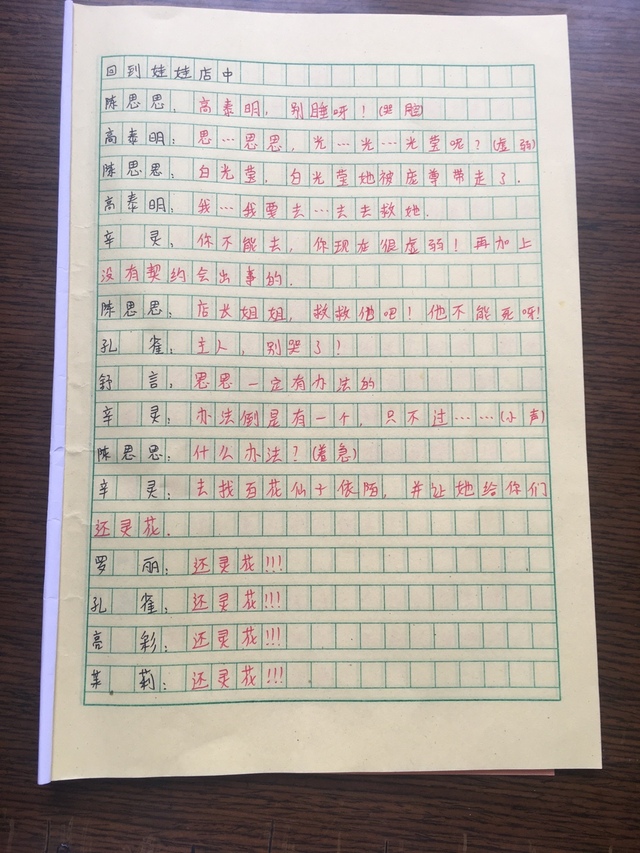 回到娃娃店中
陈思思：高泰明，别睡呀！(哭腔)
高泰明：思…思思，光…光…光莹呢？(虚弱)
陈思思：白光莹，白光莹她被庞尊带走了．
高泰明：我…我要去…去去救她．
辛灵：你不能去，你现在很虚弱！再加上
没有契约会出事的．
陈思思：店长姐姐，救救他吧！他不能死呀!
孔雀：主人，别哭了！
舒言：思思一定有办法的
辛灵：办法倒是有一个，只不过……(小声)
陈思思：什么办法？(着急)
辛灵：去找百花仙子依陌，并让她给你们
还灵花．
罗丽：还灵花!!!
孔雀：还灵花!!!
亮彩：还灵花!!!
茉莉：还灵花!!!